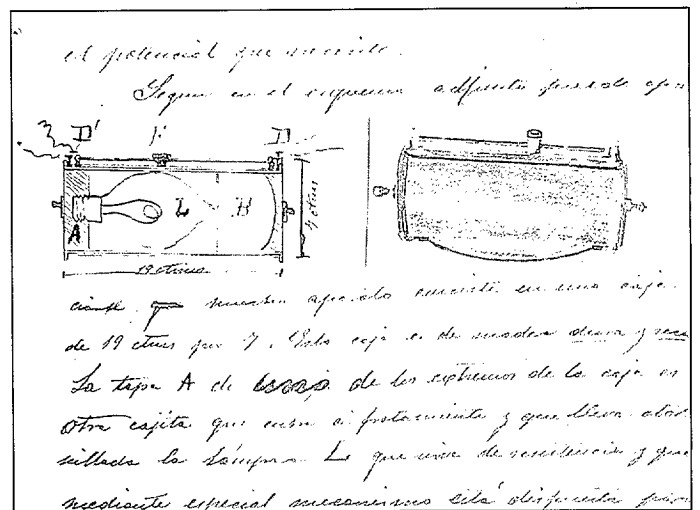 el potencial que necesite.
Segun en el esquema adjunto puede apre
D' F D
L B
A
7 ctms
19 ctms
ciarse que nuestro aparato consiste en una caja
de 19 ctms por 7. Esta caja es de madera dura y seca
La tapa A de uno de los extremos de la caja es
otra cajita que entra a frotamiento y que lleva ator
nillada la lámpara L que sirve de resistencia y que
mediante especial mecanismo está dispuesta para